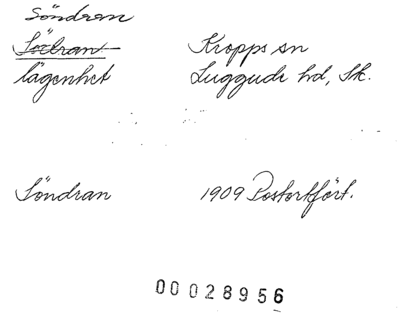 Söndran
Sörbran Kropps sn
lägenhet Luggude hd, Sk.
Söndran 1909 Postortfört.
00028956